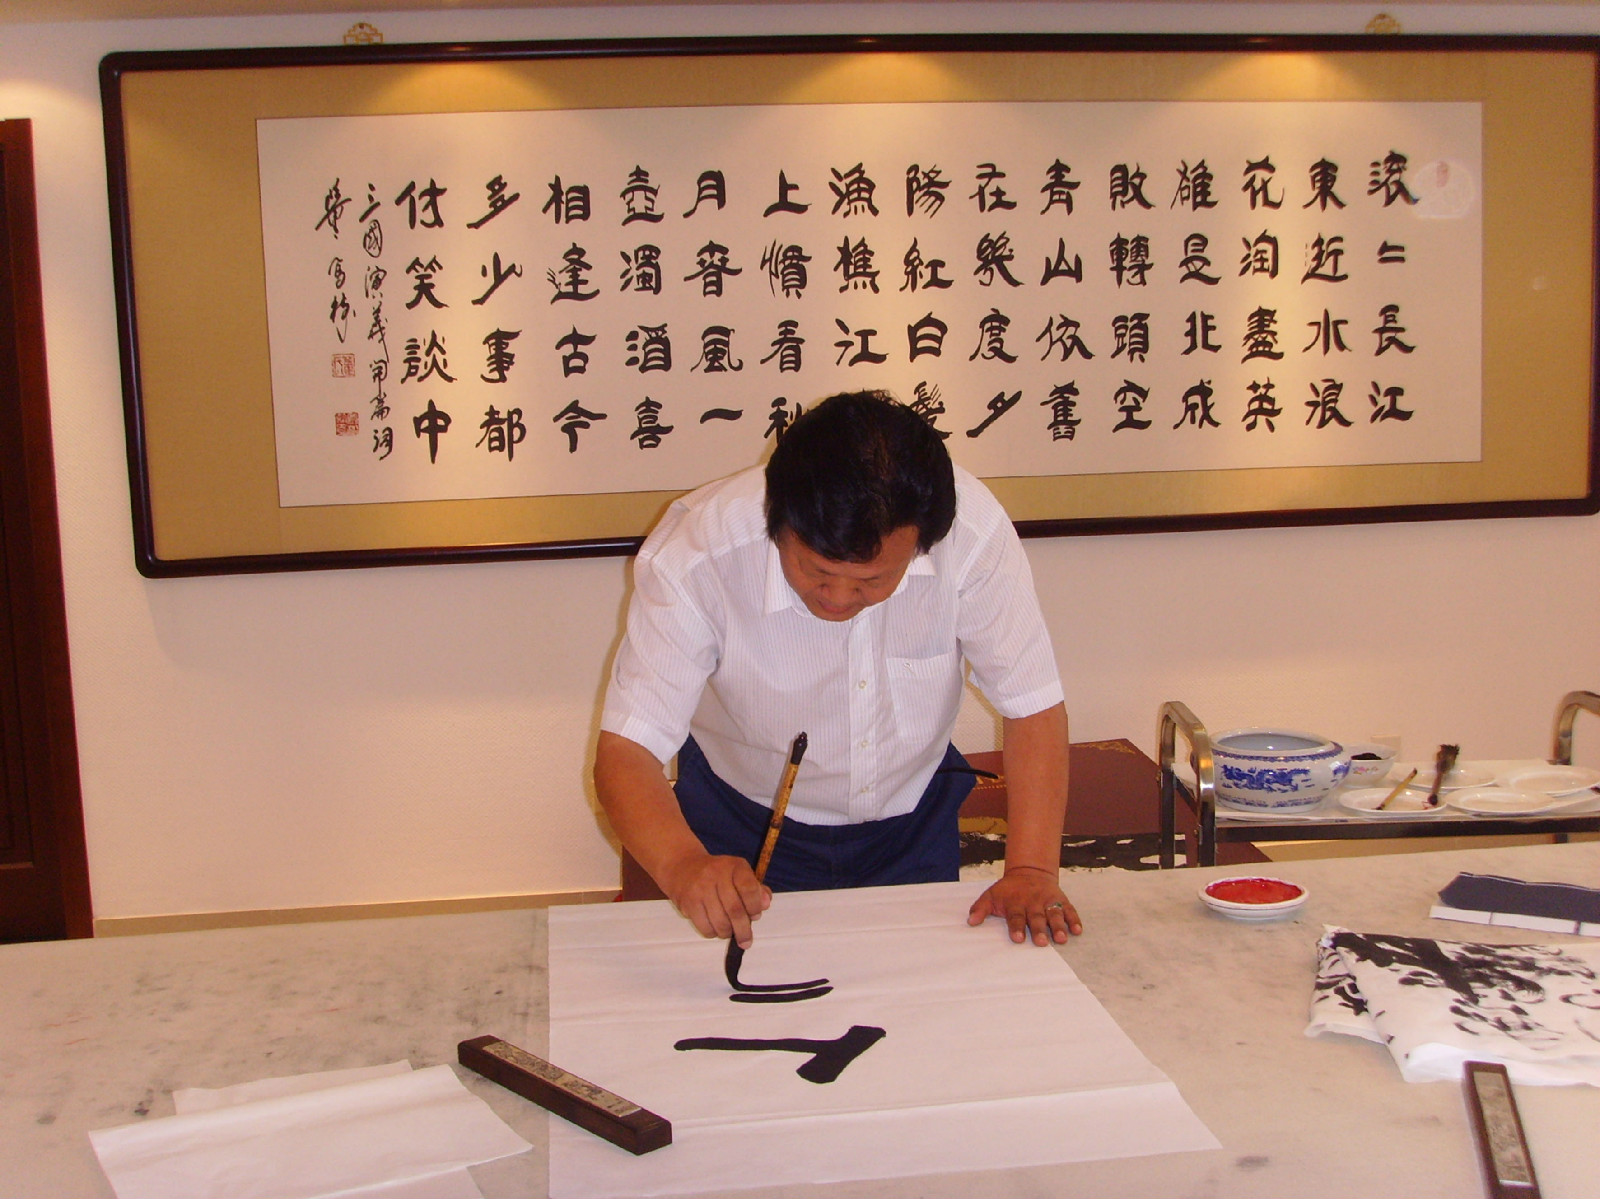 滚〻長江
東逝水浪
花淘盡英
雄是非成
敗轉頭空
青山依舊
在幾度夕
陽紅白髮
漁樵江
上慣看秋
月春風一
壺濁酒喜
相逢古今
多少事都
付笑談中
三國演義開篇詞